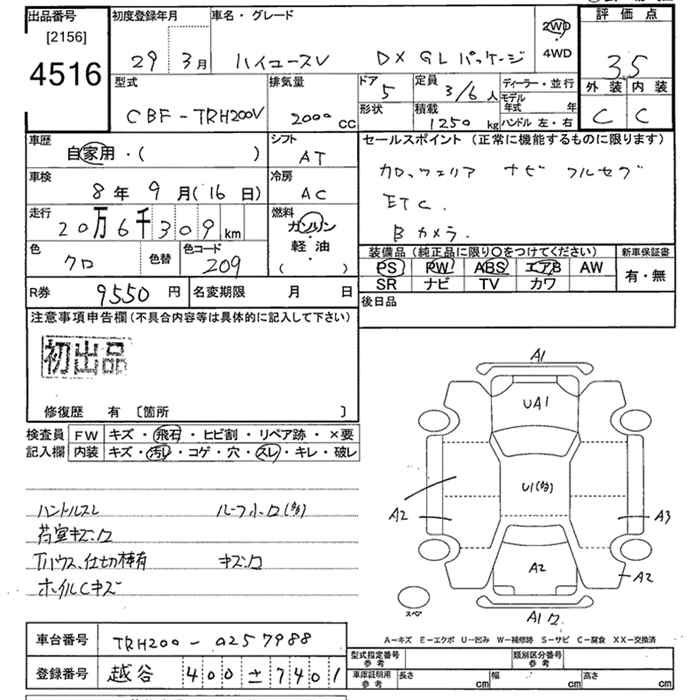 出品番号
[2156]
4516
初度登録年月
29 3月
車名・グレード
ハイエースV DX GLパッケージ
2WD
4WD
評価点
3.5
外装 内装
C C
型式
CBF-TRH200V
排気量
2000 CC
ドア
5
形状
定員
3/6人
積載
1250 kg
ディーラー・並行
モデル年式 年
ハンドル 左・右
車歴
自家用・( )
シフト
AT
車検
8年 9月(16日)
冷房
AC
走行
20万6千309km
燃料
ガソリン
軽・油
( )
色
クロ
色替
色コード
209
セールスポイント (正常に機能するものに限ります)
カロッツェリア ナビ フルセグ
ETC.
Bカメラ.
装備品 (純正品に限り〇をつけてください)
PS PW ABS エアB AW
SR ナビ TV カワ
新車保証書
有・無
R券 9550円
名変期限 月 日
後日品
注意事項申告欄(不具合内容等は具体的に記入して下さい)
初出品
修復歴 有 〔箇所 〕
検査員記入欄
FW キズ・飛石・ヒビ割・リペア跡・×要
内装 キズ・汚レ・コゲ・穴・スレ・キレ・破レ
ハンドルスレ
荷室キズ
ホイルCキズ
A1
UA1
U1
A2
A3
A2
A2
A1
スペア
A-キズ E-エクボ U-凹み W-補修跡 S-サビ C-腐食 XX-交換済
車台番号 TRH200-0257988
登録番号 越谷 400 ± 7401
型式指定番号 参考
類別区分番号 参考
車庫証明用 参考 長さ cm 幅 cm 高さ cm